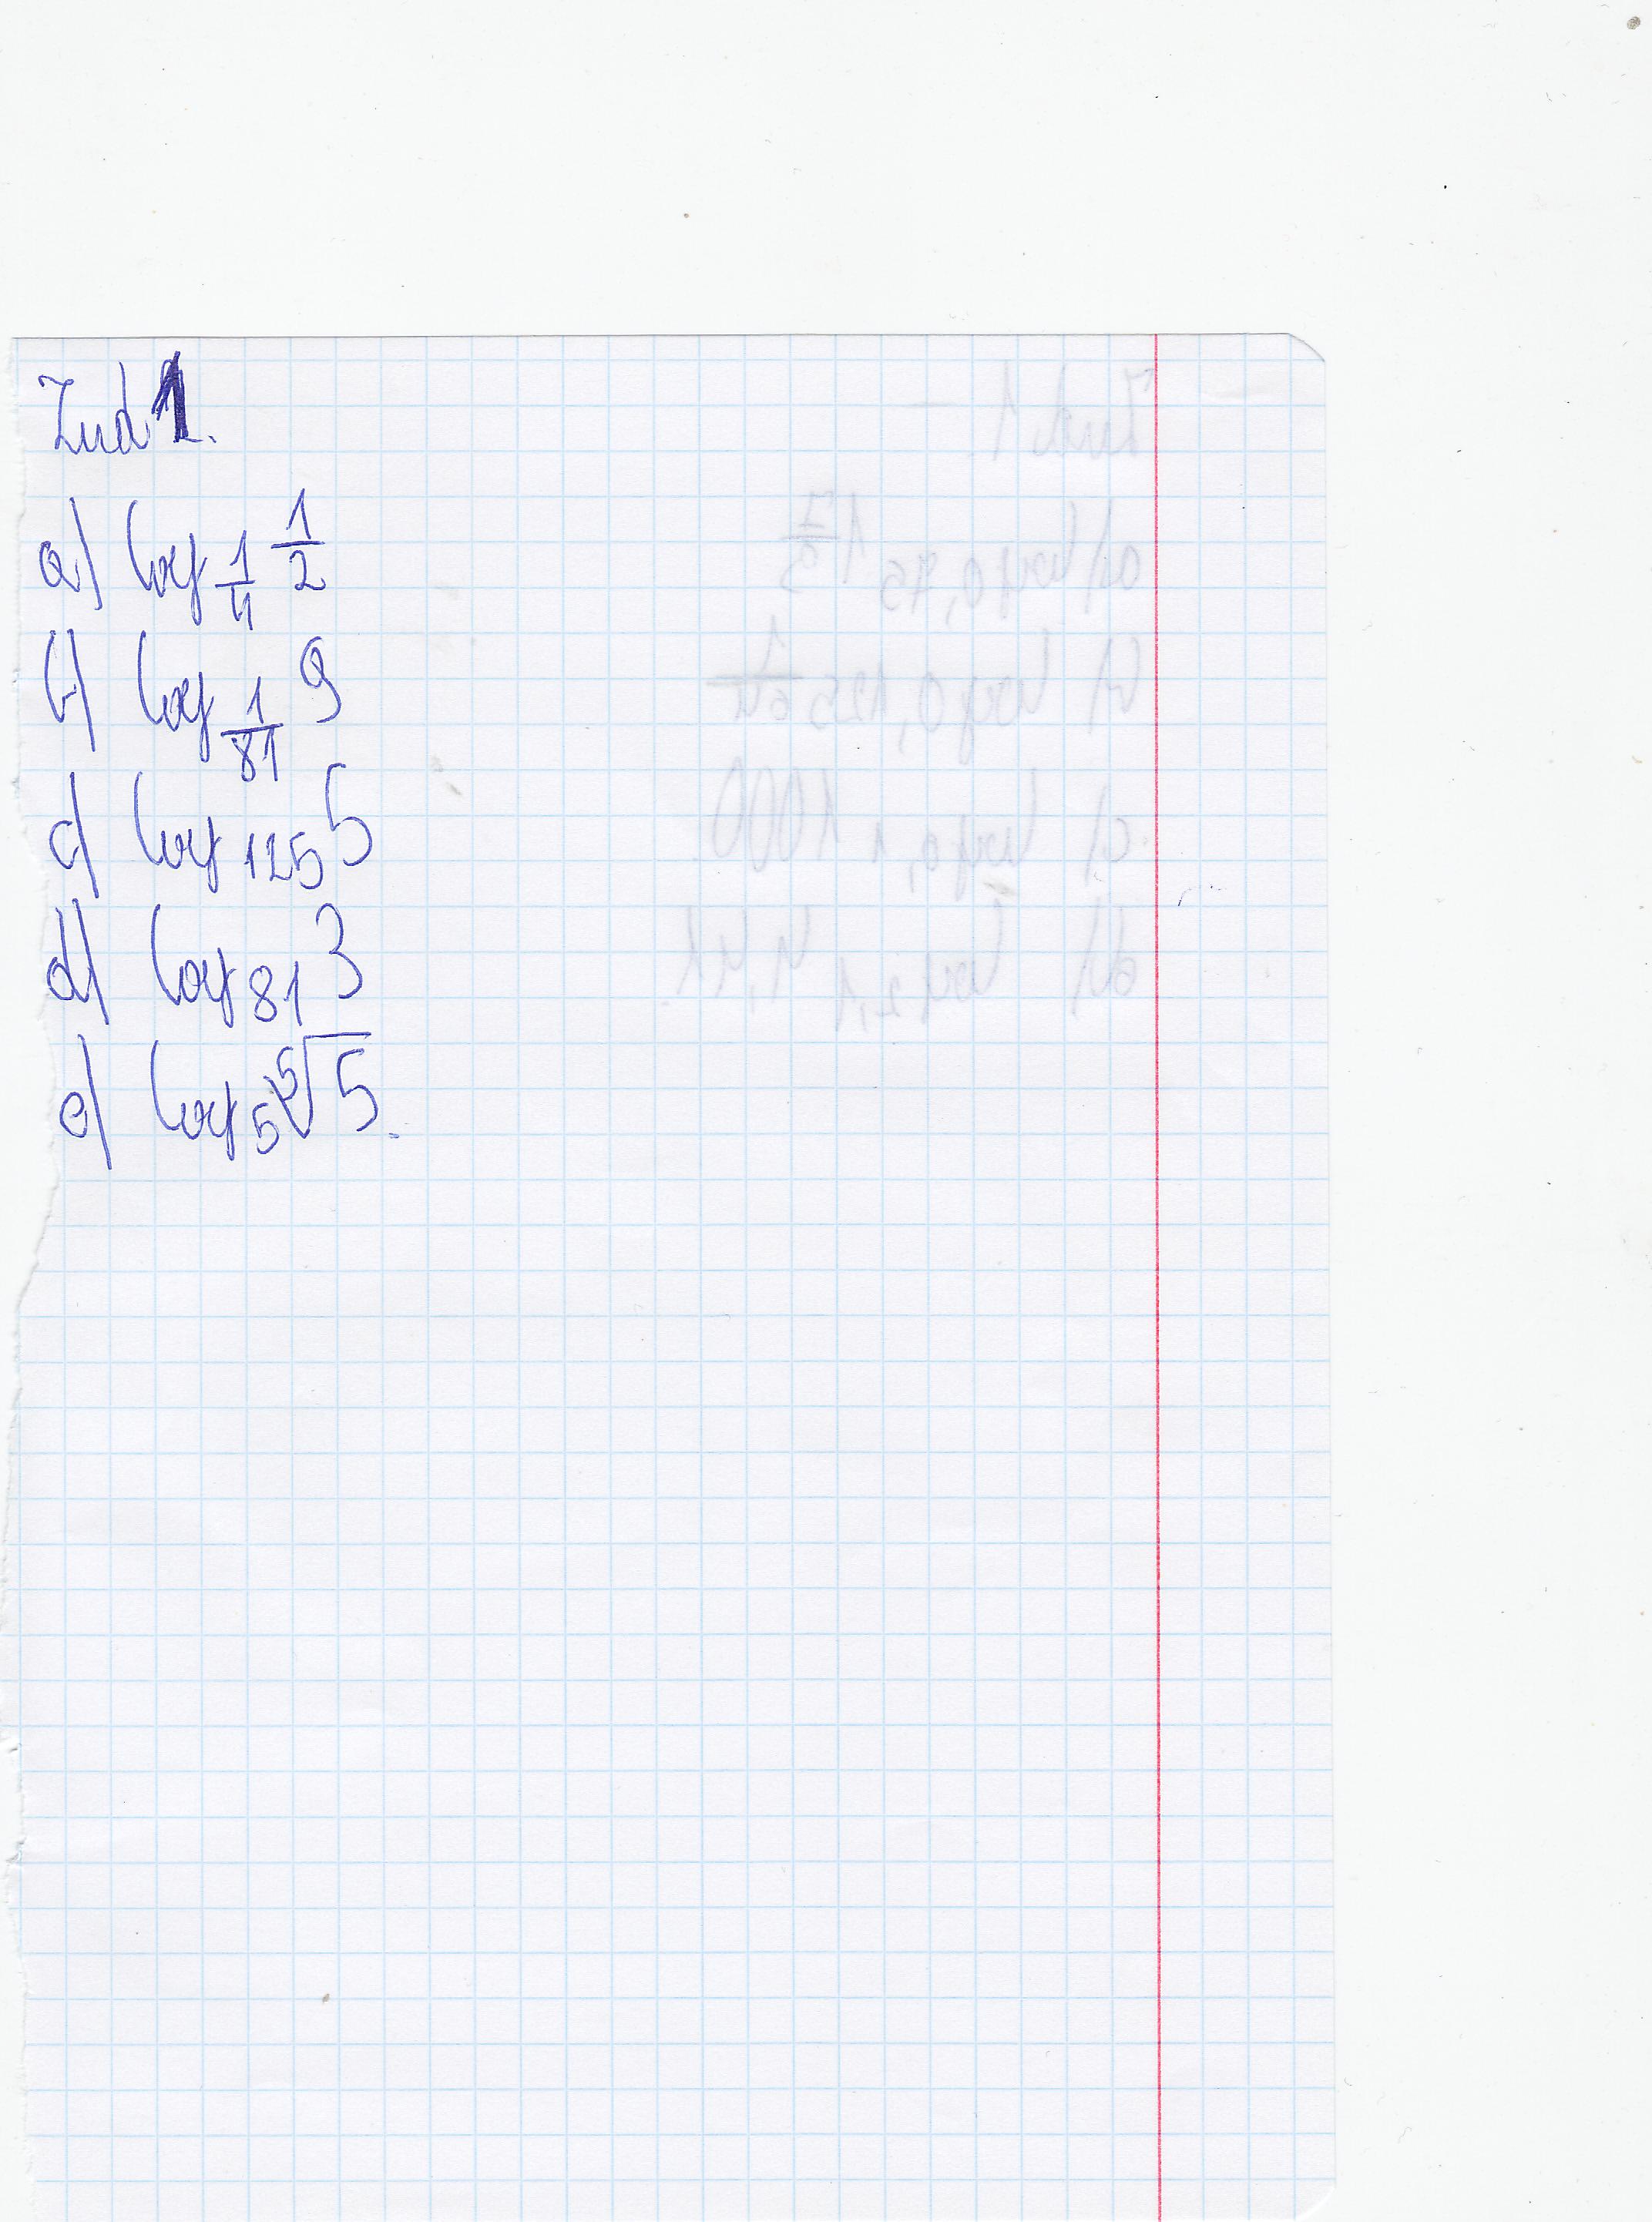 Zad 1.
a) log 1/4 1/2
b) log 1/81 9
c) log 125 5
d) log 81 3
e) log 5 ⁵√5.